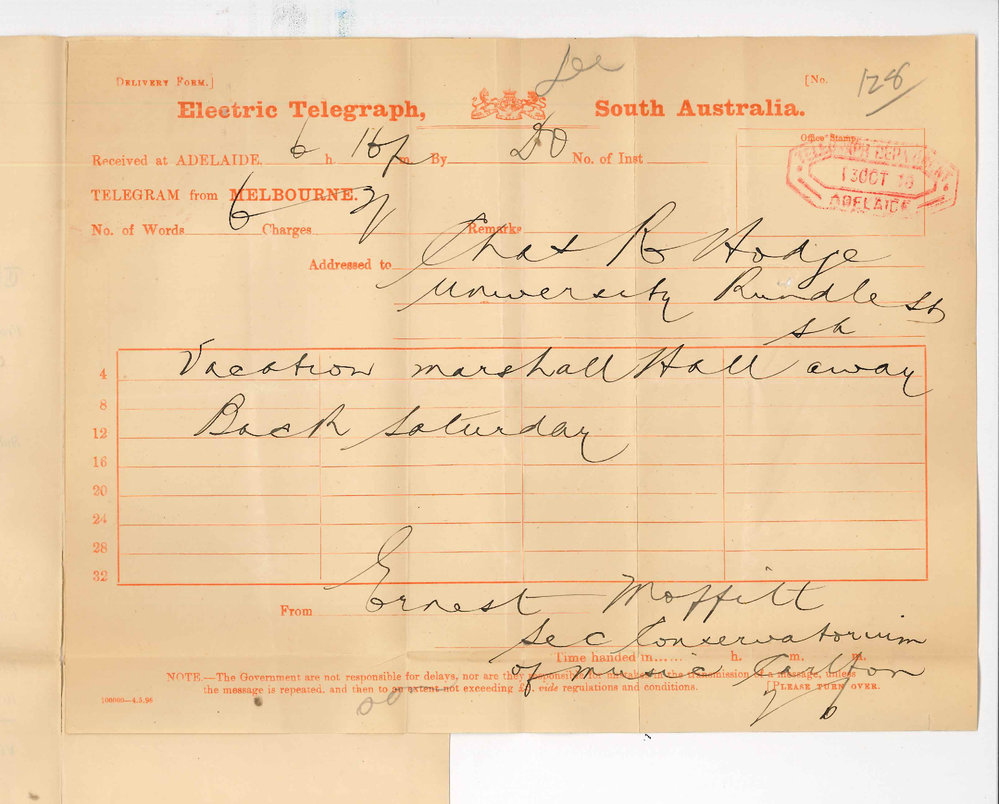 DELIVERY FORM.] [No. 128
Electric Telegraph, South Australia.
Office Stamp.
Received at ADELAIDE 6 h. m. By No. of Inst
TELEGRAPH DEPARTMENT
13 OCT
ADELAIDE
TELEGRAM from MELBOURNE.
No. of Words 6 Charges Remarks
Addressed to Chas R Hodge
University Rundle St
Vacation Marshall Hall away
4
8
Back Saturday
12
16
20
24
28
32
From Ernest Moffitt
Sec Conservatorium
Time handed in...... h. m. m.
of music Carlton
NOTE.—The Government are not responsible for delays, nor are they responsible for mistakes in the transmission of a message, unless
the message is repeated, and then to an extent not exceeding £5, vide regulations and conditions. [PLEASE TURN OVER.
100000—4.5.96